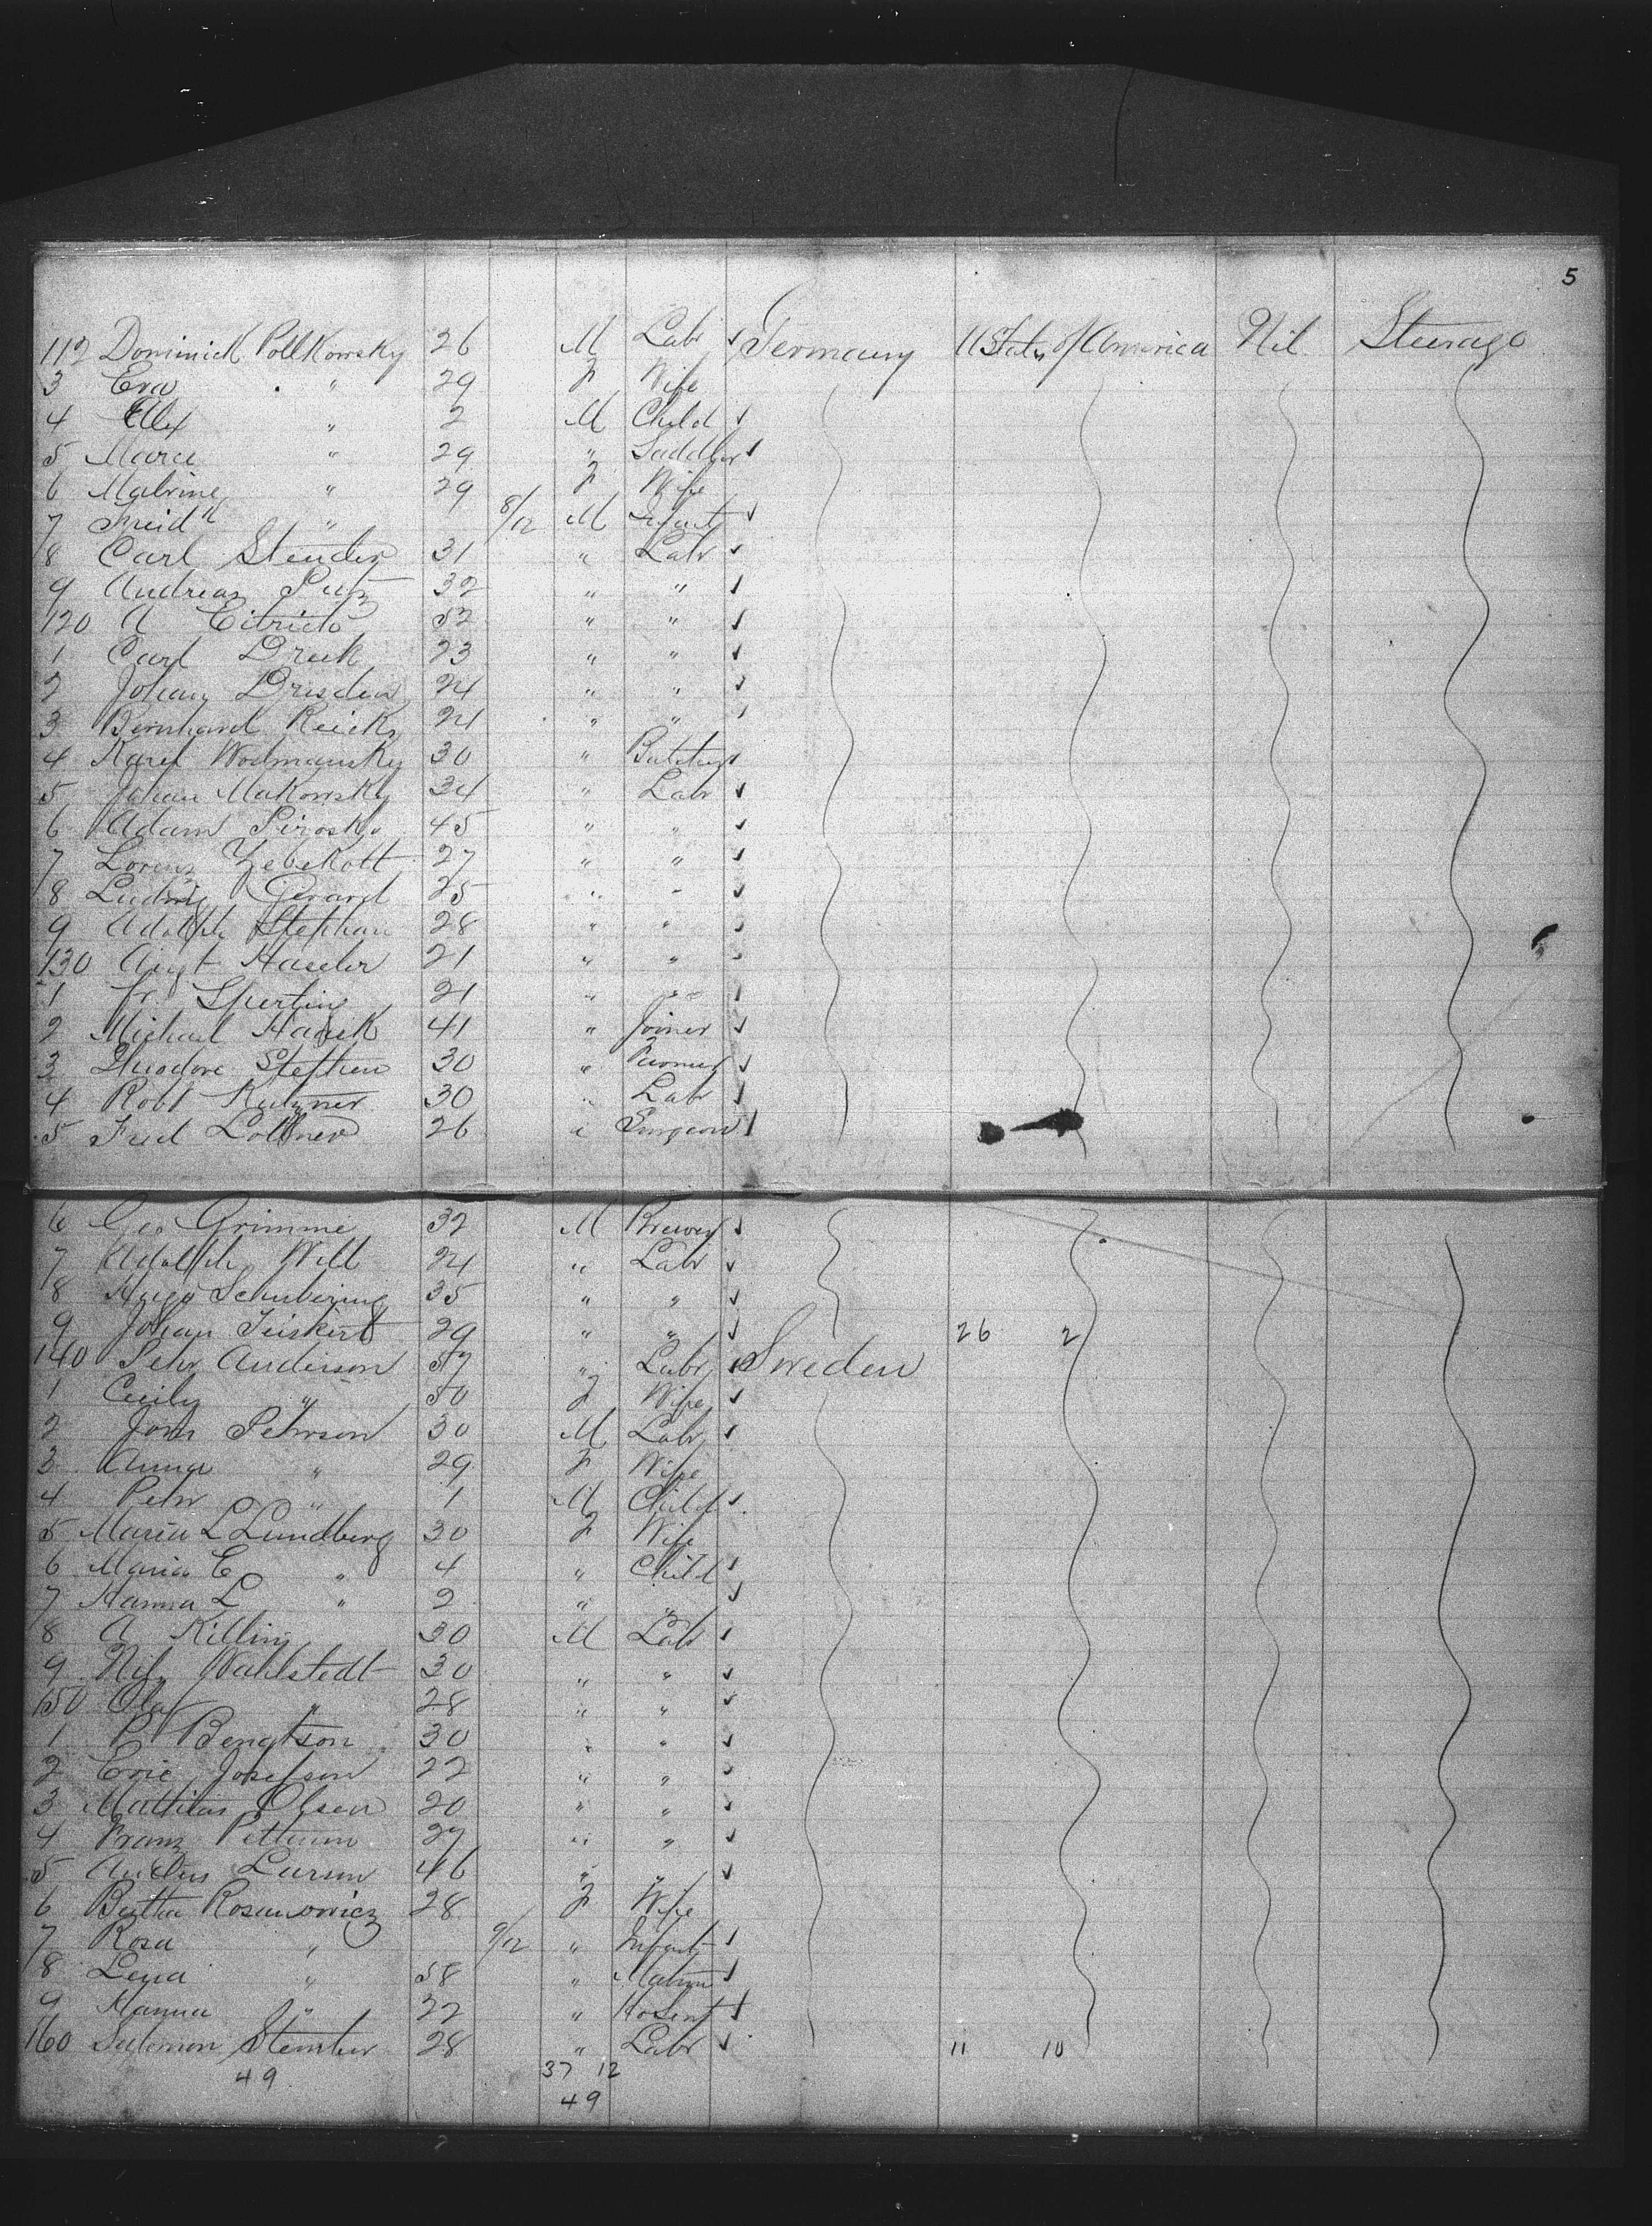 5
112 Dominick Pollkowsky 26 M Labr ✓ Germany U States of America Nil Steerage
3 Eva " 29 F Wife
4 Alex " 2 M Child ✓
5 " 29 " Saddler ✓
6 " 29 F Wife
7 " 8/12 M Infant ✓
8 Carl Stender 31 " Labr ✓
9 Andreas 32 " " ✓
120 A 52 " " ✓
1 Carl 23 " " ✓
2 Johan Dresden 24 " " ✓
3 Bernhard Reicks 24 " " ✓
4 Karl Wodmansky 30 " Butcher ✓
5 Johan Makowsky 34 " Labr ✓
6 Adam 45 " " ✓
7 Lorenz Zebekott 27 " " ✓
8 Ludwig Gerard 25 " " ✓
9 Adolph Stephan 28 " " ✓
130 Augt Haseler 21 " " ✓
1 Fr. Sperling 21 " " ✓
2 Michael 41 " Joiner ✓
3 Theodore Stephen 30 " ✓
4 Robt 30 " Labr ✓
5 Fred 26 " Surgeon ✓
6 Geo Grimme 32 M Brewer ✓
7 Adolph Will 24 " Labr ✓
8 Hugo Schubering 35 " " ✓
9 Johan 29 " " ✓ 26 2
140 Pehr Anderson 57 " Labr ✓ Sweden
1 Cecily " 50 F Wife ✓
2 John Pehrson 30 M Labr ✓
3 Anna " 29 F Wife
4 Pehr " 1 M Child ✓
5 Maria L Lundberg 30 F Wife
6 Maria E " 4 " Child ✓
7 Hanna L " 2 " " ✓
8 A Killing 30 M Labr ✓
9 Nils Wahlstedt 30 " " ✓
150 Olaf " 28 " " ✓
1 P Bengtson 30 " " ✓
2 Eric Josefson 22 " " ✓
3 Mattias Olsen 20 " " ✓
4 Franz 27 " " ✓
5 Larson 46 " " ✓
6 Bertha Rosenowicz 28 F Wife
7 Rosa " 9/12 " Infant ✓
8 Lena " 58 " Matron ✓
9 Hanna " 22 " ✓
160 Salomon 28 " Labr ✓ 11 10
49 37 12
49